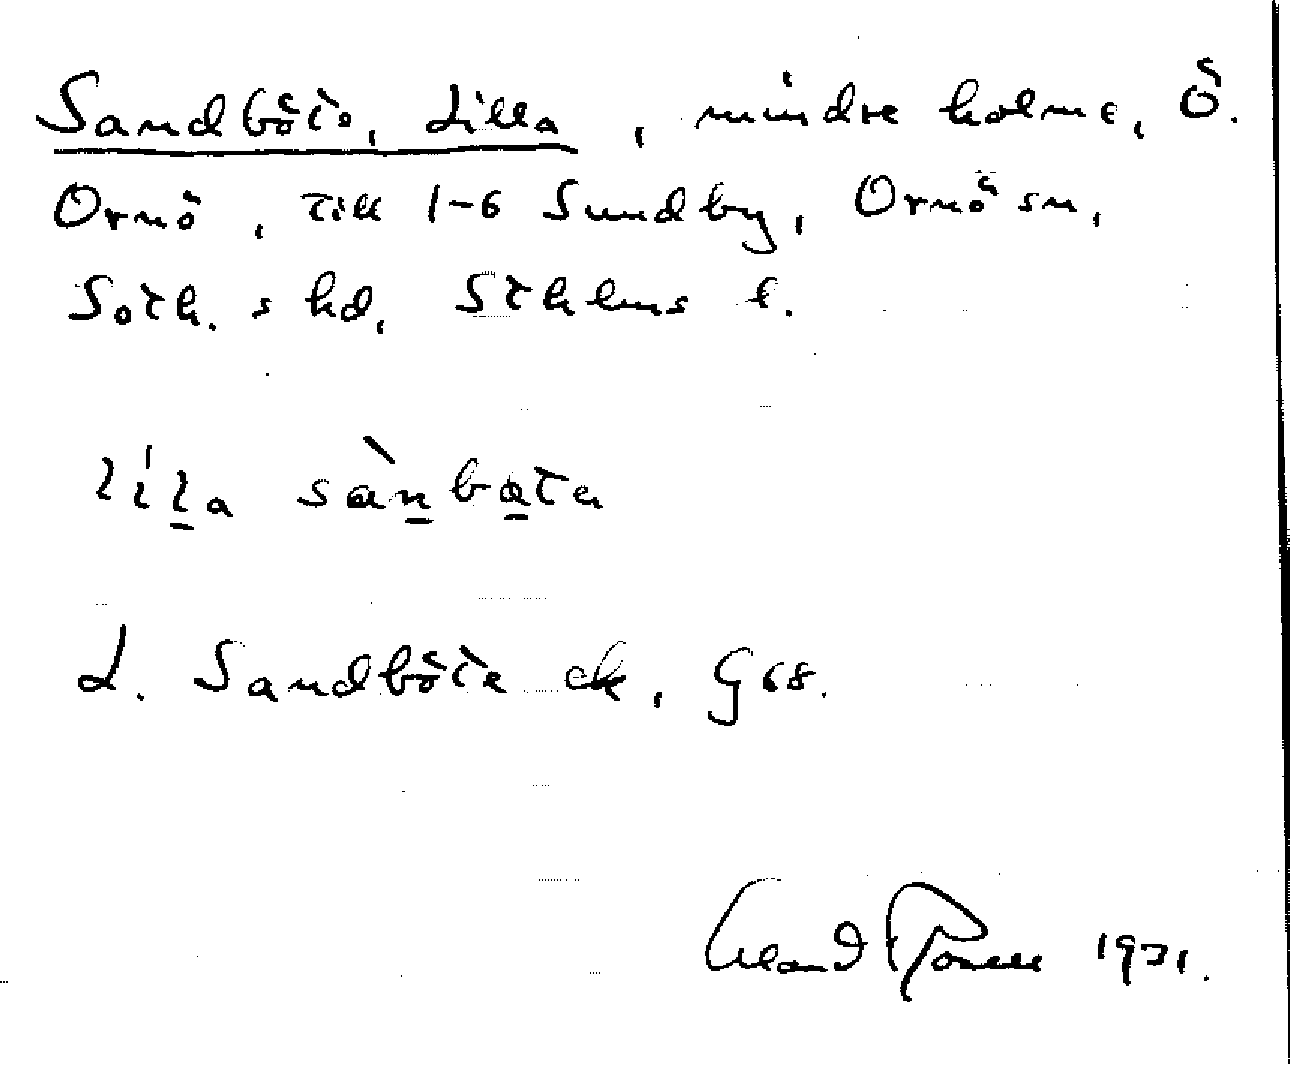 Sandböte, Lilla, mindre holme, Ö.
Ornö, till 1-6 Sundby, Ornö sn,
Soth. s hd, Sthlms l.
lila sànbata
L. Sandböte ek, G68.
1971.